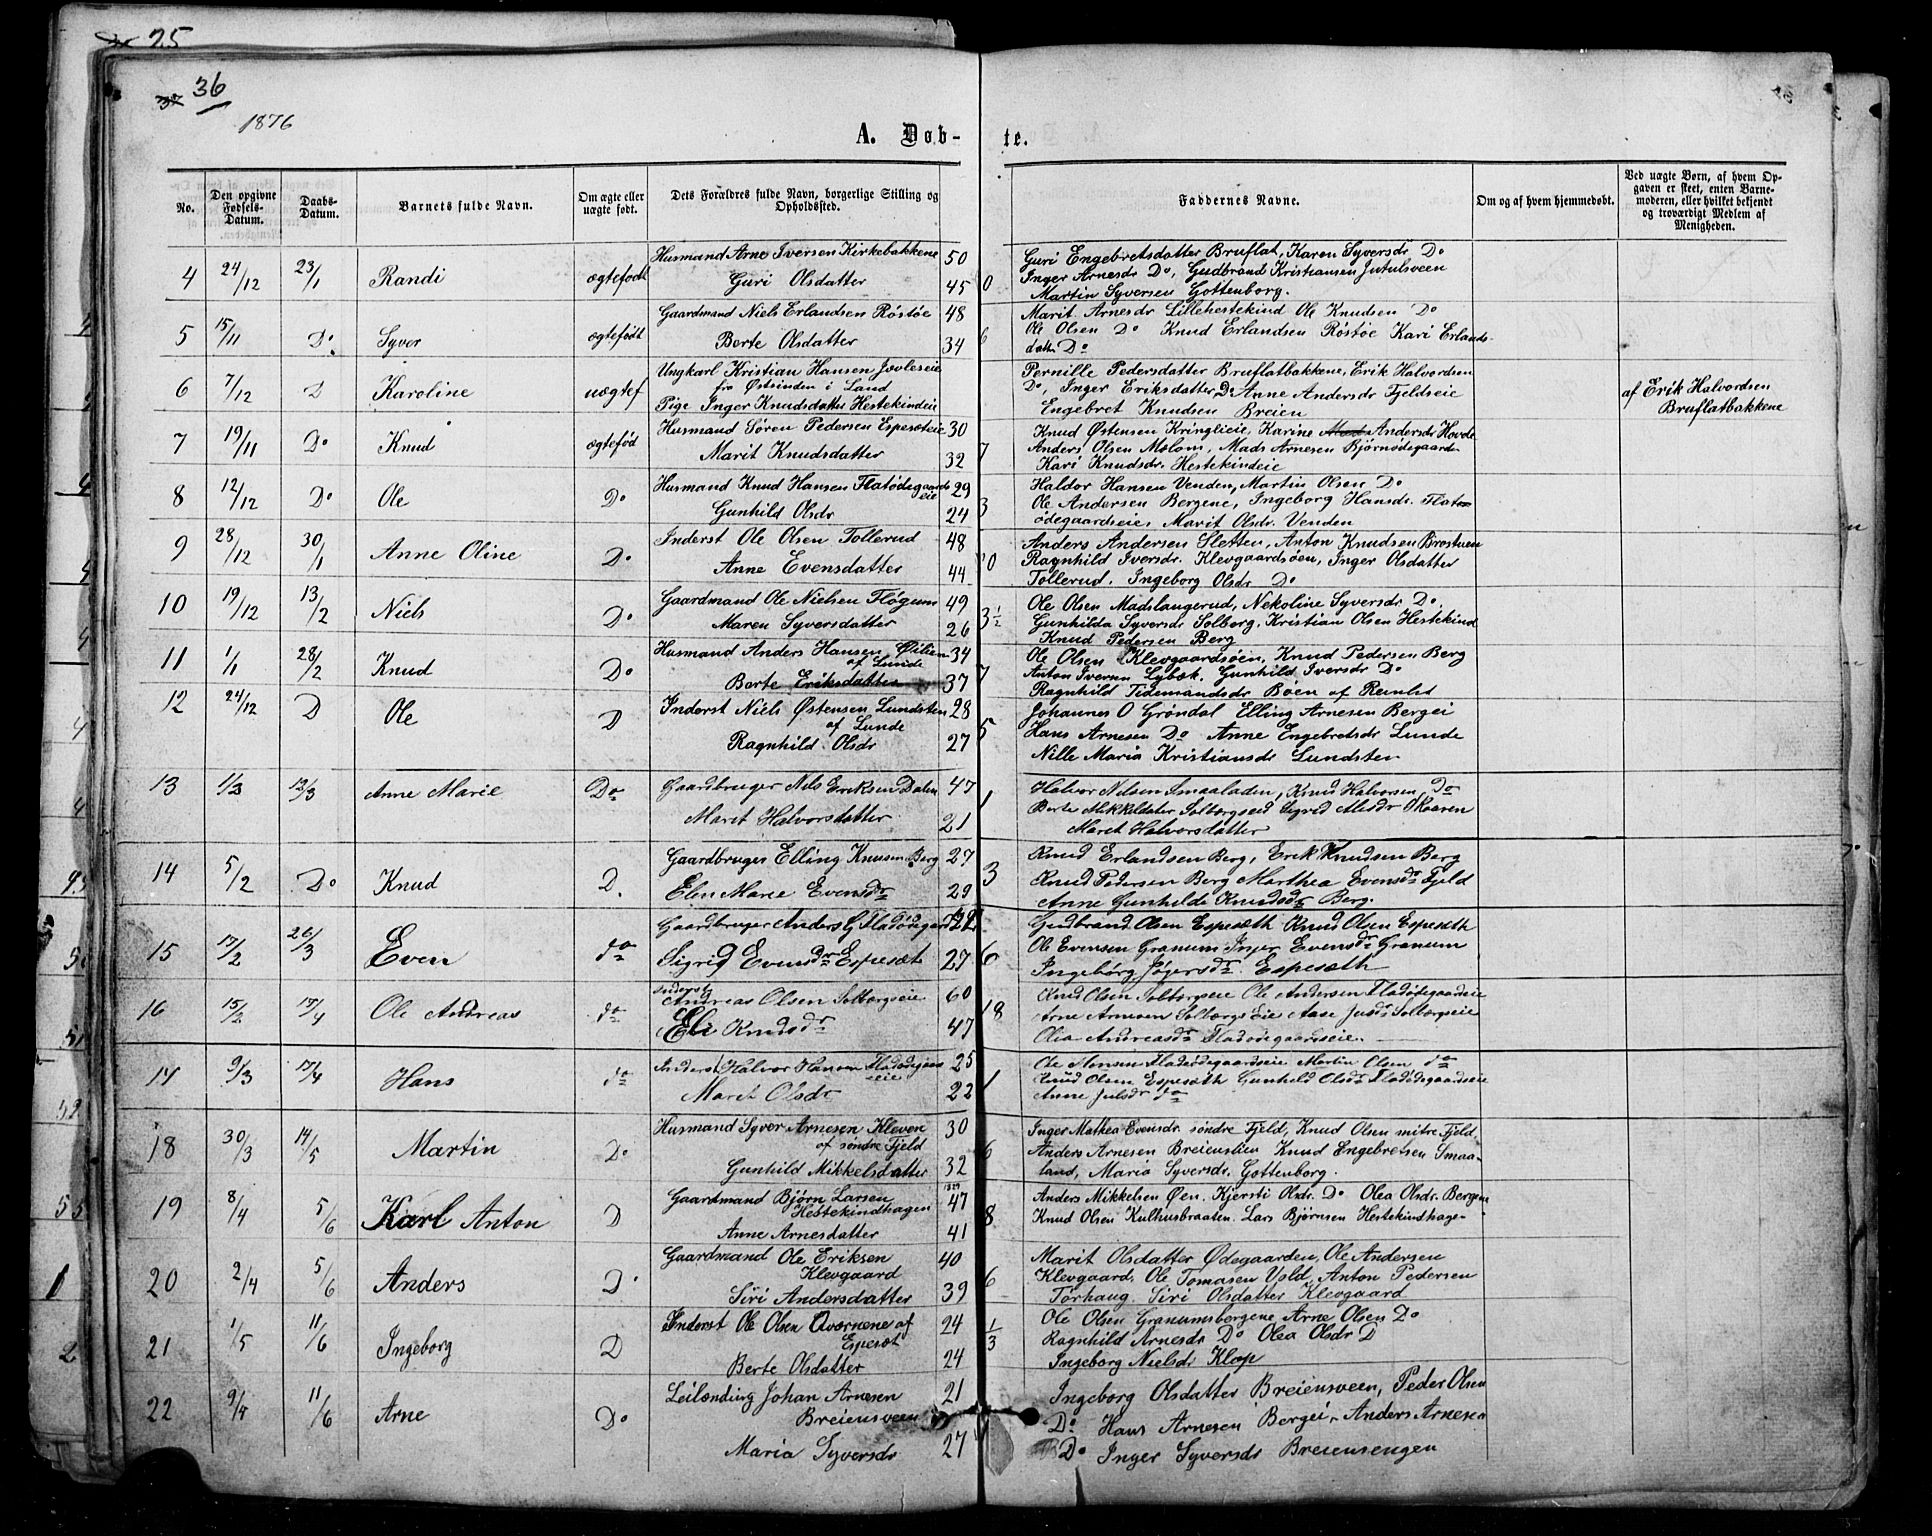 25
37 36
1876
A. Døb- te.
No.
Den opgivne Fødsels-Datum.
Daabs-Datum.
Barnets fulde Navn.
Om ægte eller uægte født.
Dets Forældres fulde Navn, borgerlige Stilling og Opholdssted.
Faddernes Navne.
Om og af hvem hjemmedøbt.
Ved uægte Børn, af hvem Opgaven er skeet, enten Barnemoderen, eller hvilket bekjendt og troværdigt Medlem af Menigheden.
4 24/12 23/1 Randi ægtefødt Husmand Arne Iversen Kirkebakkene 50
Guri Olsdatter 45 0
Guri Engebretsdatter Bruflat, Karen Syversdr Do
Inger Arnesdr Do, Gudbrand Kristiansen Jutulsveen
Martin Syversen Gottenborg.
5 15/11 Do Syver ægtefødt Gaardmand Niels Erlandsen Röstöe 48
Berte Olsdatter 34 6
Marit Arnesdr Lillehestekind Ole Knudsen Do
Ole Olsen Do Knud Erlandsen Röstöe Kari Erlands-
datter Do
6 7/12 D Karoline uægtef Ungkarl Kristian Hansen Jovleseie
fra Østsinden i Land
Pige Inger Knudsdatter Hestekindeie
Pernille Pedersdatter Bruflatbakkene, Erik Halvordsen
Do, Inger Eriksdatter Do Anne Andersdr Fjeldseie
Engebret Knudsen Breien
af Erik Halvordsen
Bruflatbakkene
7 19/11 Do Knud ægtefød Husmand Sören Pedersen Espesæteie 30
Marit Knudsdatter 32 7
Knud Østensen Kringlieie, Karine Andersdr Hovde
Anders Olsen Molom, Mads Arnesen Bjørnødegaard
Kari Knudsdr. Hestekindeie
8 12/12 Do Ole Do Husmand Knud Hansen Flatødegaards
eie 29
Gunhild Olsdr 24 3
Haldor Hansen Venden, Martin Olsen Do
Ole Andersen Bergene, Ingeborg Hansdr. Flat-
ødegaardseie, Marit Olsdr. Venden
9 28/12 30/1 Anne Oline Do Inderst Ole Olsen Tollerud 48
Anne Evensdatter 44 10
Anders Andersen Sletten, Anton Knudsen Brostuen
Ragnhild Iversdr. Klevgaardsöen, Inger Olsdatter
Tollerud, Ingeborg Olsdr Do
10 19/12 13/2 Niels Do Gaardmand Ole Nielsen Fløgum 49
Maren Syversdatter 26 3½
Ole Olsen Madslangerud, Nekoline Syversdr Do,
Gunhilda Syversdr Solberg, Kristian Olsen Hestekind
Knud Pedersen Berg
11 1/1 28/2 Knud Do Husmand Anders Hansen Ølilien 34
af Lunde
Berte Eriksdatter 37 7
Ole Olsen Klevgaardsöen, Knud Pedersen Berg
Anton Iversen Lybæk, Gunhild Iversdr Do
Ragnhild Tidemandsdr Böen af Reinlid
12 24/12 D Ole D Inderst Niels Østensen Lundsten 28
af Lunde
Ragnhild Olsdr 27 5
Johannes O Gröndal Elling Arnesen Bergei
Hans Arnesen Do Anne Engebretsdr Lunde
Nille Maria Kristiansdr Lundsten
13 1/3 12/3 Anne Marie Do Gaardbruger Nils Eriksen Dalen 47
Maret Halvorsdatter 21 1
Halvor Nilsen Smaaladen, Knud Halvorsen, Do
Berte Mikkelsdater Solbergseie Sigrid Skaaren
Maret Halvorsdatter
14 5/2 Do Knud D. Gaardbruger Elling Knusen Berg 27
Elen Marie Evensdr 29 3
Knud Erlandsen Berg, Erik Knudsen Berg
Knud Pedersen Berg Marthea Evensdr Fjeld
Anne Gunhilde Knudsdr Berg.
15 17/2 26/3 Even do Gaardbruger Anders G Fladødegard 22
Sigrid Evensdr Espesæt 27 6
Gudbrand Olsen Espesæth Knud Olsen Espeseth
Ole Evensen Granum Inger Evensdr Granum
Ingebørg Espesæth
16 15/2 17/4 Ole Andreas do Inderst
Andreas Olsen Solbergseie 60
Eli Knudsdr 47 18
Knud Olsen Solbergseie Ole Andersen Fladødegaardseie
Arne Arnesen Solbergseie Aase Solbergseie
Olea Andreasdr Fladødegaardseie.
17 9/3 17/4 Hans do Inderst Halvor Hansen Fladødegaards
eie 25
Maret Olsdr 22 1
Ole Hansen Fladødegaardseie Martin Olsen do
Knud Olsen Espesæth Gunhild Olsdr Fladødegaardseie
Anne Julsdr do
18 30/3 14/5 Martin Do Husmand Syver Arnesen Kleven 30
af søndre Fjeld
Gunhild Mikkelsdatter 32 6
Inger Mathea Evensdr. söndre Fjeld, Knud Olsen mitre Fjeld,
Anders Arnesen Breienslien Knud Engebretsen Smaa-
land, Maria Syversdr. Gottenborg.
19 8/4 5/6 Karl Anton D Gaardmand Bjørn Larsen
Hestekindhagen 1829 47
Anne Arnesdatter 41 8
Anders Mikkelsen Øen, Kjersti Olsdr. Do Olea Olsdr. Bergene
Knud Olsen Kulhusbraaten, Lars Bjørnsen Hestekindhage-
20 2/4 5/6 Anders D Gaardmand Ole Eriksen 40
Klevgaard
Siri Andersdatter 39 6
Marit Olsdatter Ødegaarden, Ole Andersen
Klevgaard, Ole Tomasen Vold, Anton Pedersen
Torhaug. Siri Olsdatter Klevgaard
21 1/5 11/6 Ingeborg D Inderst Ole Olsen Qværnene af 24
Espesæt
Berte Olsdatter 24 1/3
Ole Olsen Granumsbergene Arne Olsen Do
Ragnhild Arnesdr Do Olea Olsdr D
Ingeborg Nielsdr Klop
22 9/4 11/6 Arne Do Leilænding Johan Arnesen 21
Breiensveen
Maria Syversdr 27
Ingeborg Olsdatter Breiensveen, Peder Olsen
Do. Hans Arnesen Bergei, Anders Arnesen
Do Inger Syversdr Breiensengen